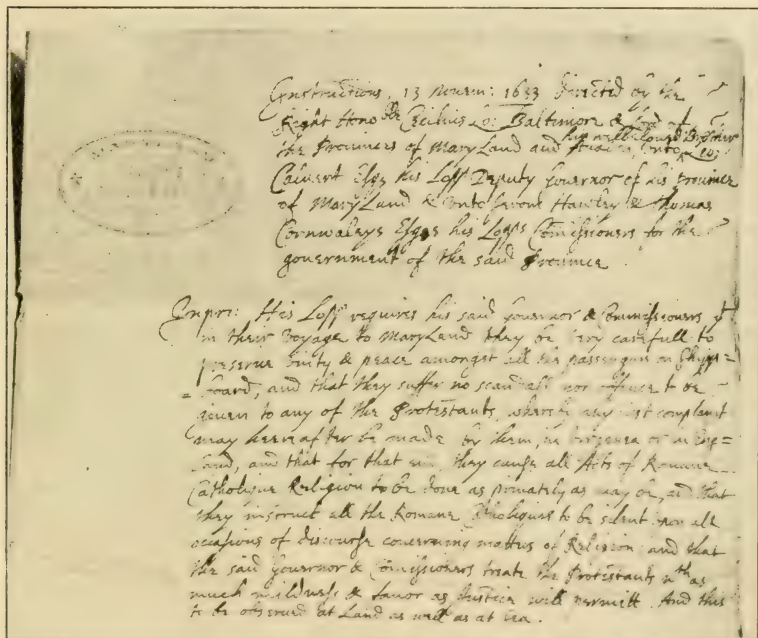 Instructions, 13 Novem: 1633 directed by the
Right Honoble Cecilius Lo: Baltimore & Lord of
the Provinces of Mary Land and Avalon unto his well beloved Brother Leo:
Calvert Esqr his Lopps Deputy Governor of his province
of Mary Land & unto Jerom Hawley & Thomas
Cornwaleys Esqrs his Lopps Comissioners for the
government of the said Province.
Inpri: His Lopp requires his said Governor & Commissioners yt
in their voyage to Mary Land they be very carefull to
preserve unity & peace amongst all the passengers on Shipp=
=board, and that they suffer no scandall nor offence to be
given to any of the Protestants, whereby any just complaint
may heereafter be made, by them, in Virginea or in Eng=
land, and that for that end, they cause all Acts of Romane
Catholique Religion to be done as privately as may be, and that
they instruct all the Romane Catholiques to be silent upon all
occasions of discourse concerning matters of Religion; and that
the said Governor & Comissioners treate the Protestants wth as
much mildness & favor as Justice will permitt. And this
to be observed at Land as well as at Sea.